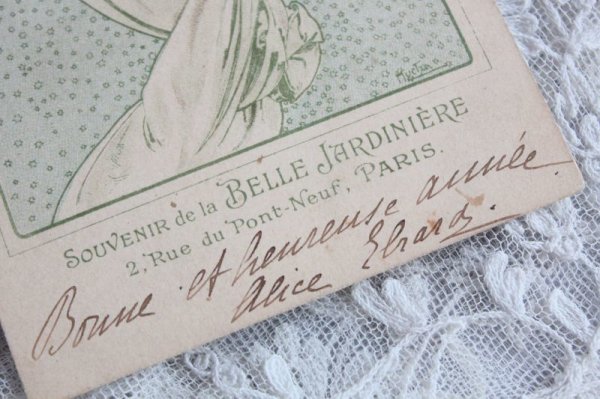 SOUVENIR de la BELLE JARDINIÈRE
2, Rue du Pont-Neuf, PARIS.
Bonne et heureuse année.
Alice